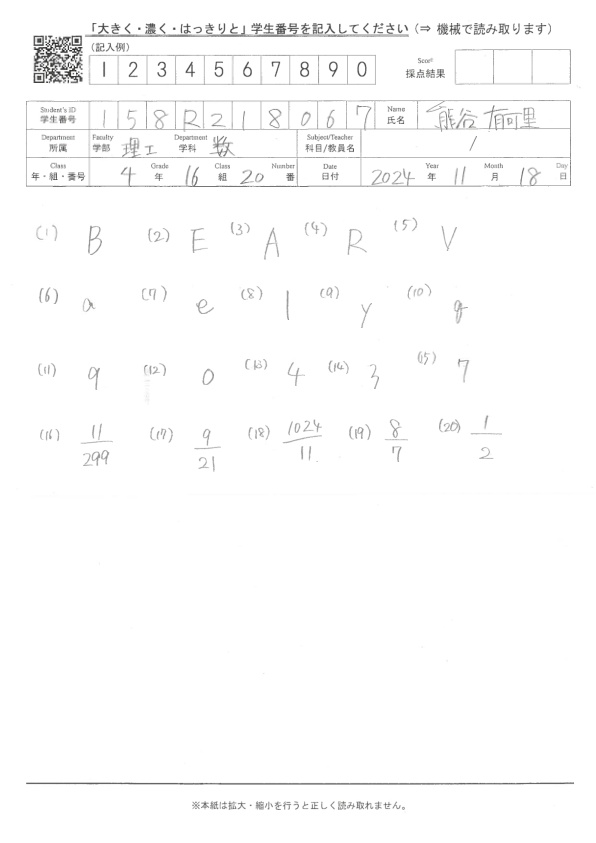 「大きく・濃く・はっきりと」学生番号を記入してください（⇒ 機械で読み取ります）
（記入例）
1 2 3 4 5 6 7 8 9 0
Score 採点結果
Student's ID 学生番号 1 5 8 R 2 1 8 0 6 7 Name 氏名 熊谷 有可里
Department 所属 Faculty 学部 理工 Department 学科 数 Subject/Teacher 科目/教員名 /
Class 年・組・番号 4 Grade 年 16 Class 組 20 Number 番 Date 日付 2024 Year 年 11 Month 月 18 Day 日
(1) B (2) E (3) A (4) R (5) V
(6) a (7) e (8) l (9) y (10) g
(11) 9 (12) 0 (13) 4 (14) 3 (15) 7
(16) 11/299 (17) 9/21 (18) 1024/11 (19) 8/7 (20) 1/2
※本紙は拡大・縮小を行うと正しく読み取れません。